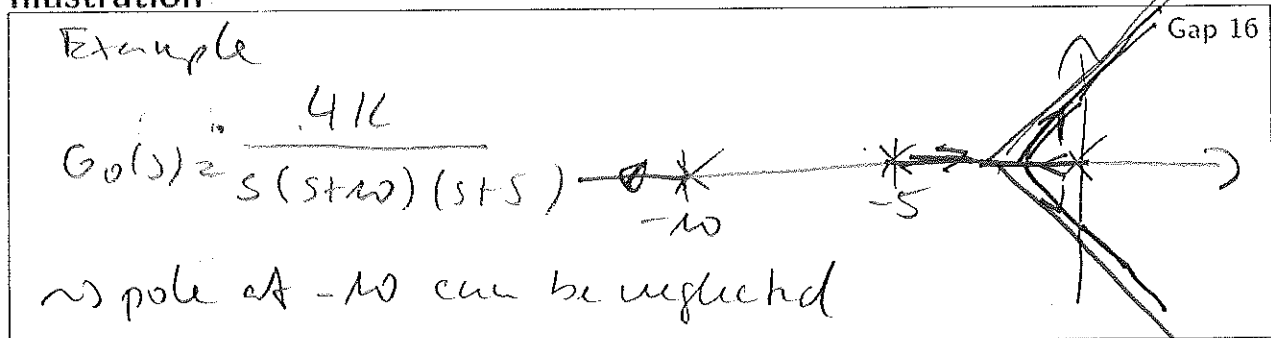 Illustration
Gap 16
Example
G₀(s) = 4K / s(s+10)(s+5)
-10
-5
~> pole at -10 can be neglected